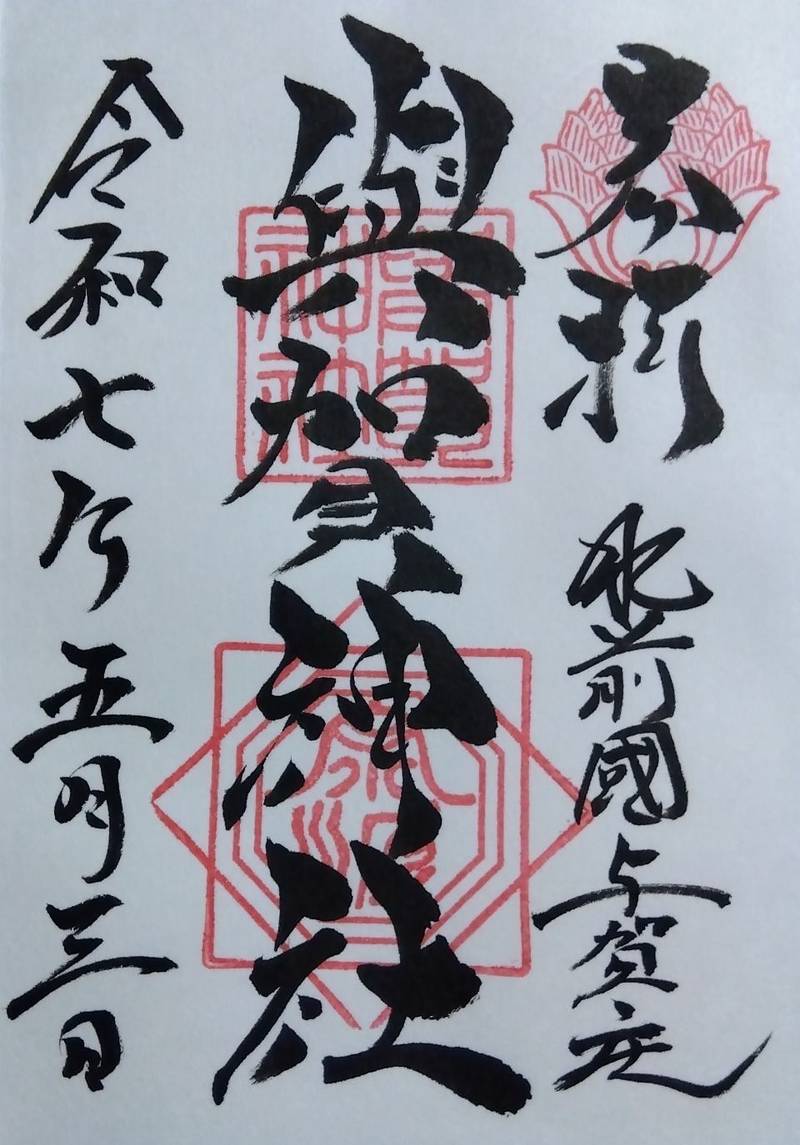 奉拝
肥前國与賀庄
與賀神社
令和七年五月三日